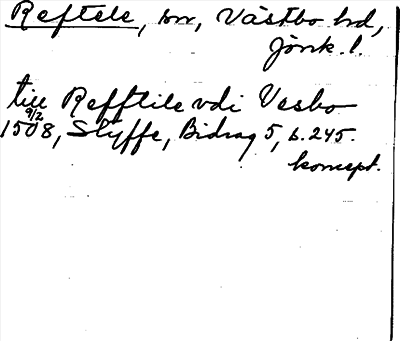 Reftele, sn, Västbo hd,
Jönk. l.
till Refftile vdi Vesbo
9/2
1508, Styffe, Bidrag 5, s. 245.
koncept.